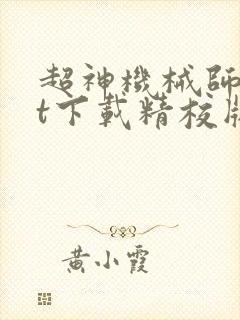 超神機械師
t下載精校版
黃小霞